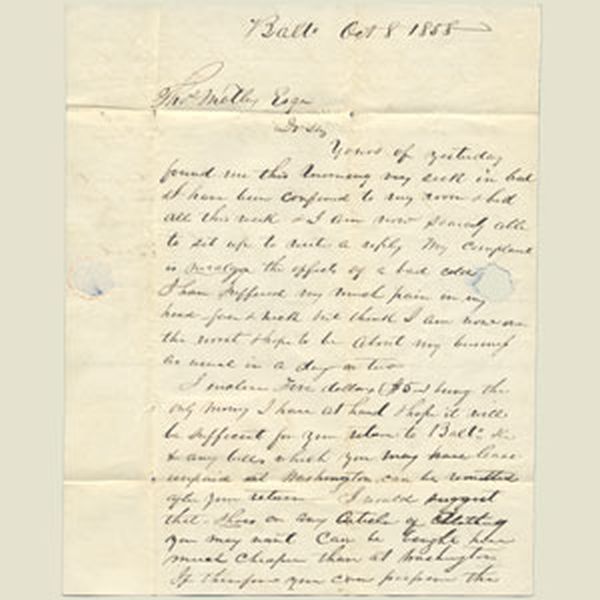 Balto Oct 8 1858
Thos Motley Esqr
Dr Sir
Yours of yesterday
found me this morning very sick in bed
I have been confined to my room & bed
all this week & I am now scarcely able
to sit up to write a reply My complaint
is the effects of a bad cold
I have suffered very much pain in my
head face & neck but think I am now over
the worst & hope to be about my business
as usual in a day or two
I enclose Five dollars ($5-) being the
only money I have at hand & hope it will
be sufficient for your return to Balto
& any bills which you may have leave
unpaid at Washington can be remitted
after your return I would suggest
that Shoes or any Article of Clothing
you may want can be bought here
much cheaper than at Washington
If therefore you can postpone the